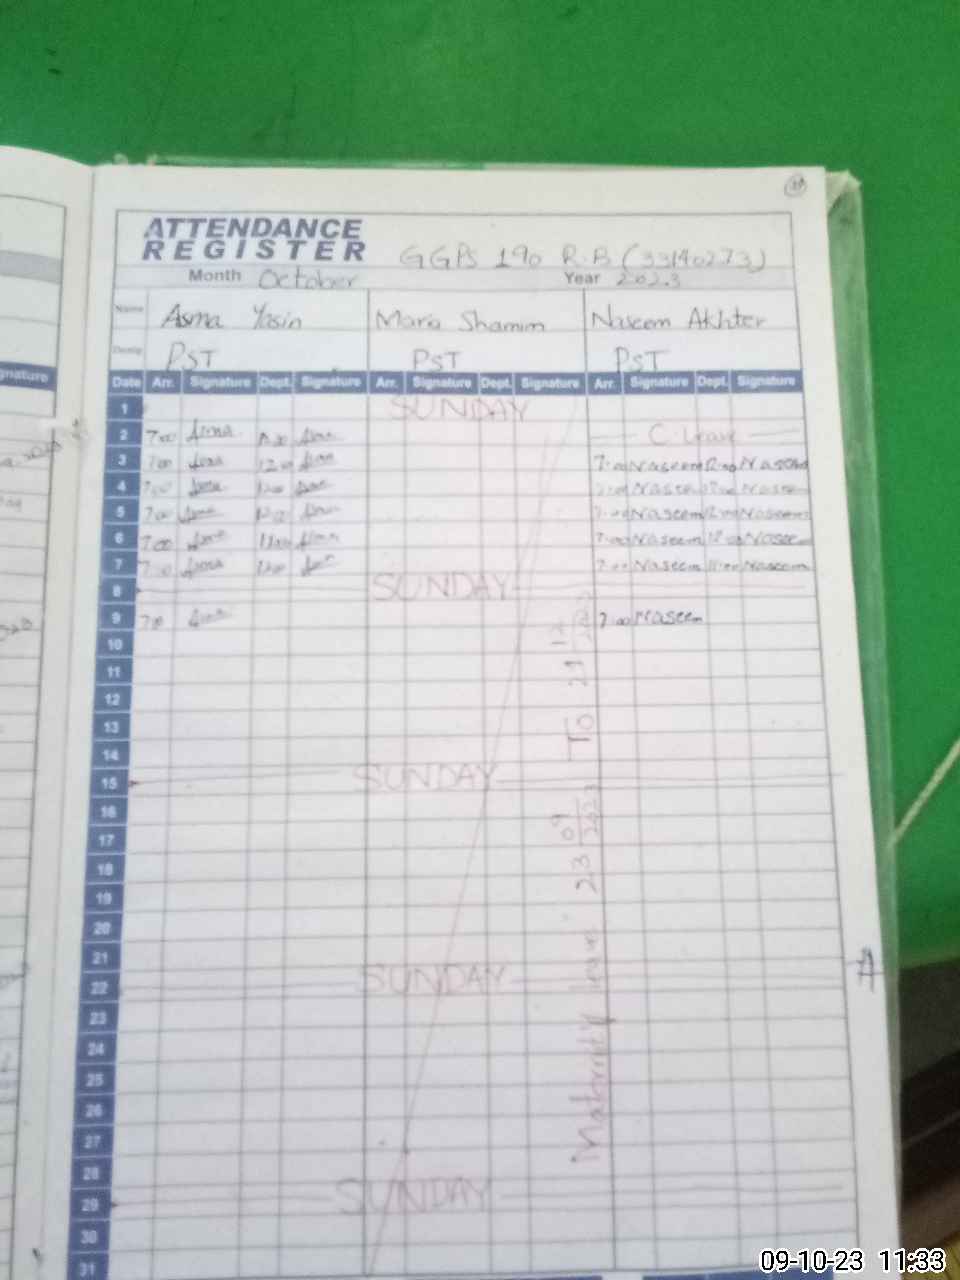 ATTENDANCE
REGISTER GGPS 190 R.B (33140273)
Month October Year 2023
Name Asma Yasin Maria Shamim Naseem Akhter
Desig PST PST PST
Date Arr. Signature Dept. Signature Arr. Signature Dept. Signature Arr. Signature Dept. Signature
1 SUNDAY
2 7:00 Asma Asma C. Leave
3 7:00 Asma 12:00 Asma 7:00 Naseem 12:00 Naseem
4 7:00 Asma 12:00 Asma 7:00 Naseem 12:00 Naseem
5 7:00 Asma 12:00 Asma 7:00 Naseem 12:00 Naseem
6 7:00 Asma Asma 7:00 Naseem 12:00 Naseem
7 7:00 Asma Asma 7:00 Naseem 11:00 Naseem
8 SUNDAY
9 7:00 Asma 7:00 Naseem
10
11
12
13
14
15 SUNDAY
16
17
18
19
20
21
22 SUNDAY
23
24
25
26
27
28
29 SUNDAY
30
31
Maternity leave 23 09 2023 TO 21 12 2023
gnature
09-10-23 11:33